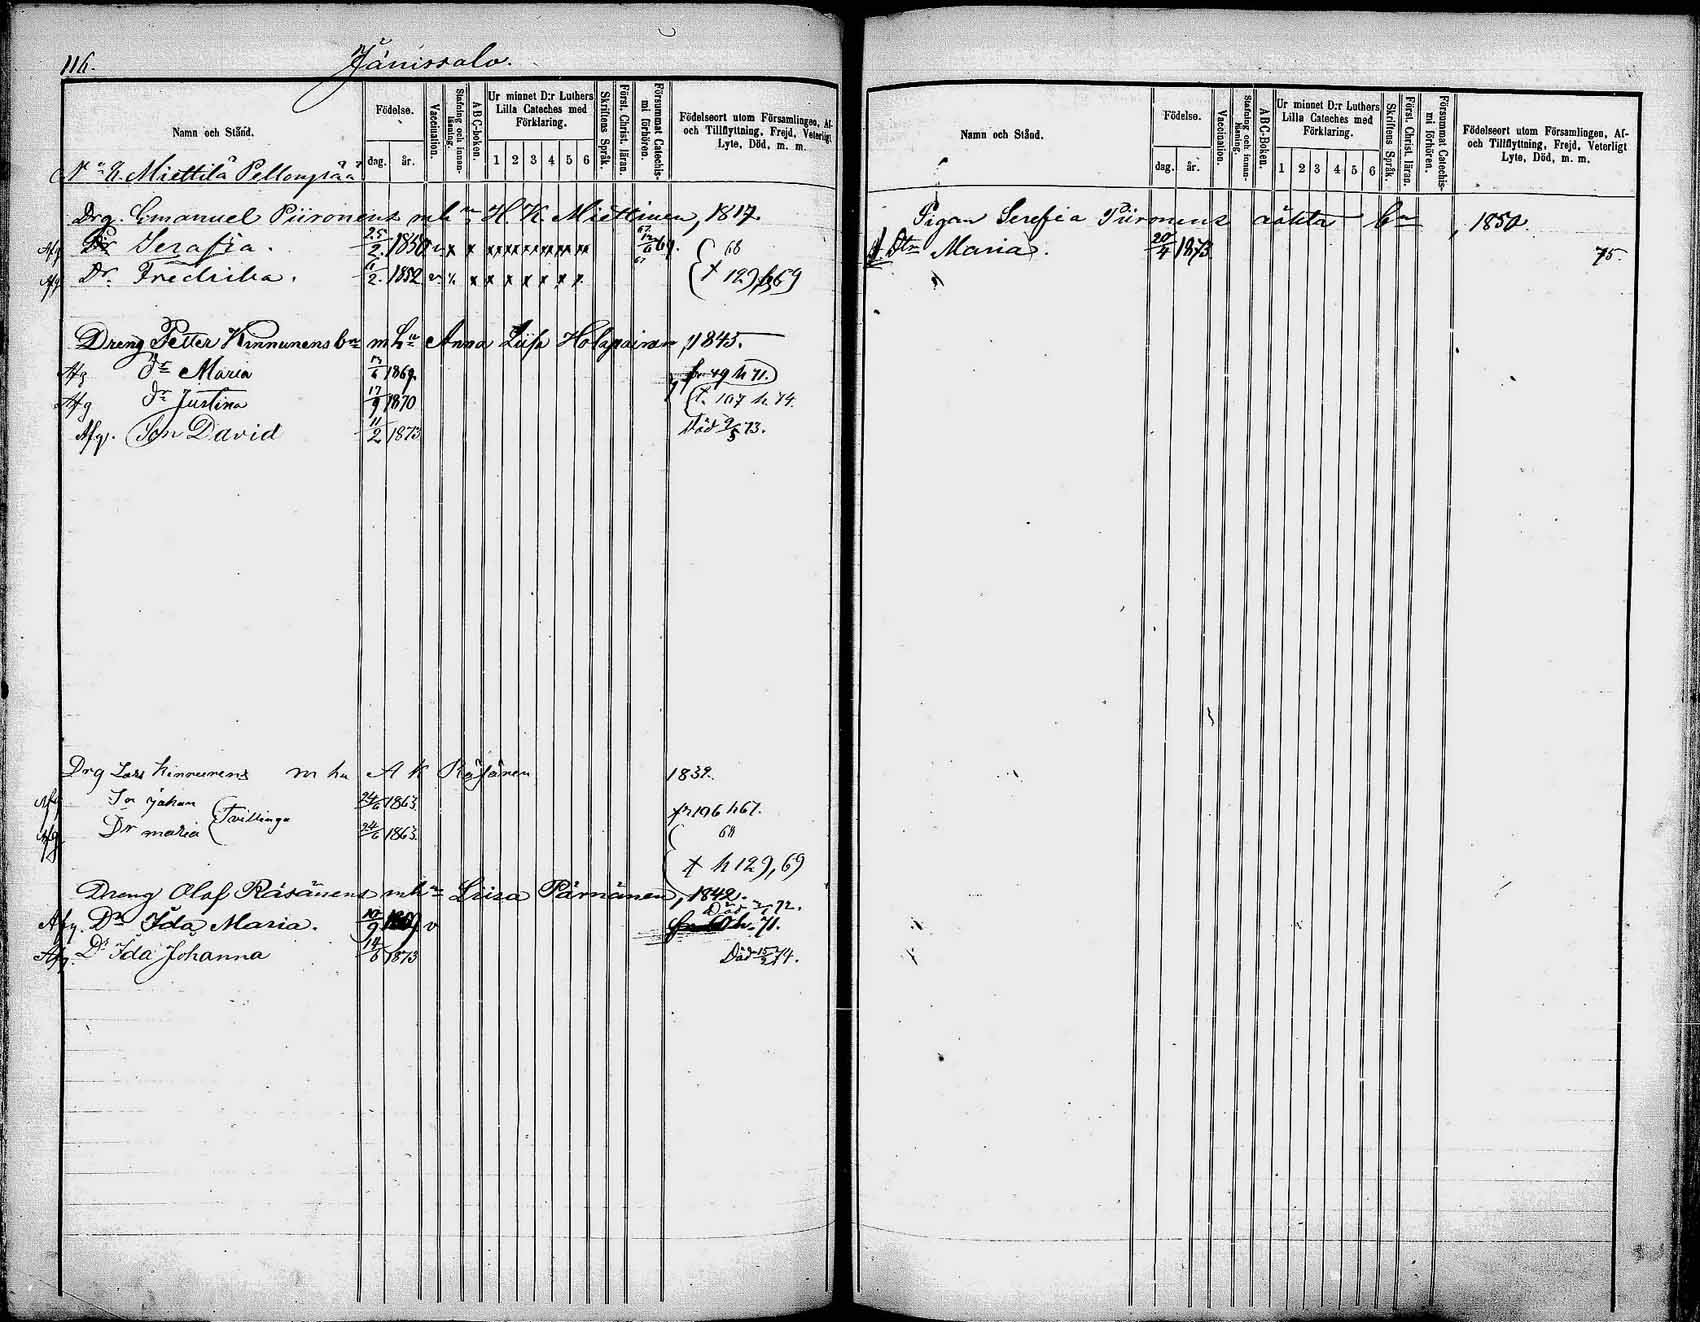 116.
Jänissalo.
Namn och Stånd.
Födelse.
dag.
år.
Vaccination.
Stafning och innanläsning.
ABC-boken.
Ur minnet D:r Luthers Lilla Cateches med Förklaring.
1 2 3 4 5 6
Skriftens Språk.
Först. Christ. läran.
Försummat Catechismi förhören.
Födelseort utom Församlingen, Af- och Tillflyttning, Frejd, Veterligt Lyte, Död, m. m.
Miettilä
Drg. Emanuel Piironens m h H. K. Miettinen, 1817.
Afg Dr Serafia. 25/2 1850 v x x 68
Afg Dr. Fredrika. 2 1852 v x x x x x x 129 69
Dreng Petter Kinnunens bn m hu Anna Holopainen, 1845.
Afg Dr Maria 6 1869. 49 h 71.
Afg Dr Justina 17/9 1870 107 h. 74.
Afg. Son David 11/2 1873 Död 9/5 73.
Drg Lars Kinnunens m hu A K Räsänen 1839.
Afg Son Johan 24/6 1863 Tvillinga fr 196 h 67.
Afg Dr Maria 24/6 1863. 68
h 129, 69
Dreng Olof Räsänens m h Liisa Pärnänen, 1842.
Död 72.
Afg. Dr Ida Maria. 10/9 1869 v h. 71.
Afg. Dr Ida Johanna 14/6 1873 Död 15/2 74.
Namn och Stånd.
Födelse.
dag.
år.
Vaccination.
Stafning och innanläsning.
ABC-Boken.
Ur minnet D:r Luthers Lilla Cateches med Förklaring.
1 2 3 4 5 6
Skriftens Språk.
Först. Christ. läran.
Försummat Catechismi förhören.
Födelseort utom Församlingen, Af- och Tillflyttning, Frejd, Veterligt Lyte, Död, m. m.
Pigan Serefia Piironens oäkta bn, 1850.
Dtr Maria. 20/4 1873 75.